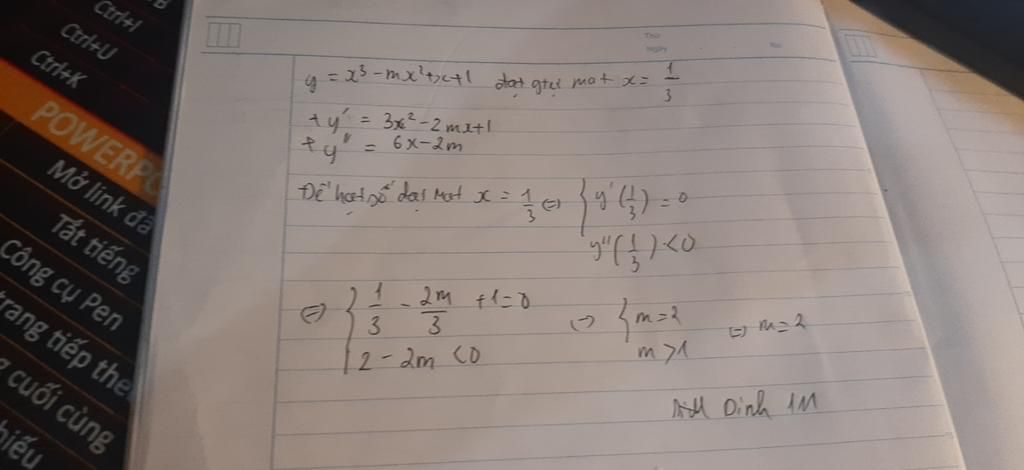 Ctrl+I
Ctrl+U
Ctrl+K
POWERPO
Mở link đã
Tắt tiếng
Công cụ Pen
trang tiếp the
g cuối cùng
hiếu
Thứ
Ngày
No
y = x³ - mx² + x + 1 đạt max x = 1/3
+ y' = 3x² - 2mx + 1
+ y'' = 6x - 2m
Để hàm số đạt max x = 1/3 ⇔ { y'(1/3) = 0
y''(1/3) < 0
⇔ { 1/3 - 2m/3 + 1 = 0 ⇔ { m = 2 ⇔ m = 2
2 - 2m < 0 m > 1
Dinh 1M